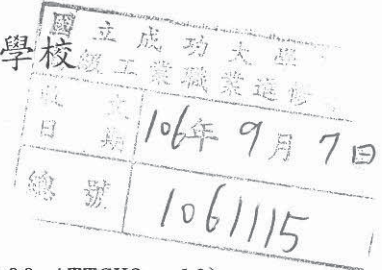 學校
國立成功大學
級工業職業進修
收文
日期 106年9月7日
總號 1061115